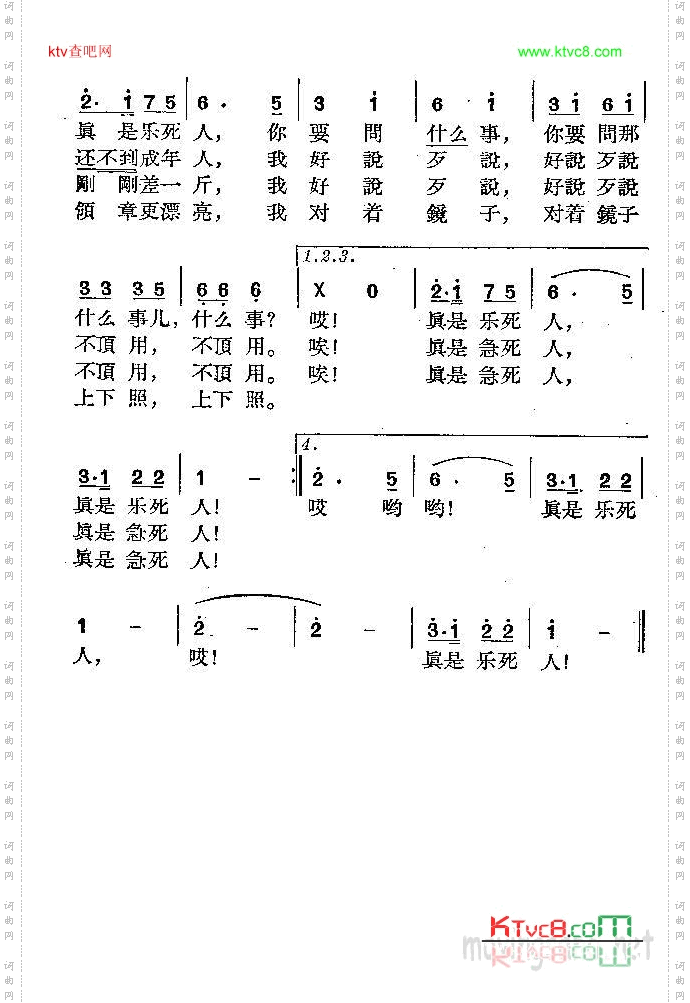 ktv查吧网 www.ktvc8.com
2· 1 7 5 6· 5 3 1 6 1 3 1 6 1
眞是乐死人, 你要問什么事, 你要問那
还不到成年人, 我好說歹說, 好說歹說
剛剛差一斤, 我好說歹說, 好說歹說
領章更漂亮, 我对着鏡子, 对着鏡子
1.2.3.
3 3 3 5 6 6 6 X 0 2·1 7 5 6· 5
什么事儿, 什么事? 哎! 眞是乐死人,
不頂用, 不頂用。 唉! 眞是急死人,
不頂用, 不頂用。 唉! 眞是急死人,
上下照, 上下照。
4.
3·1 2 2 1 - 2· 5 6· 5 3·1 2 2
眞是乐死人! 哎 哟 哟! 眞是乐死
眞是急死人!
眞是急死人!
1 - 2 - 2 - 3·1 2 2 1 -
人, 哎! 眞是乐死人!
KTvc8.com
词曲网